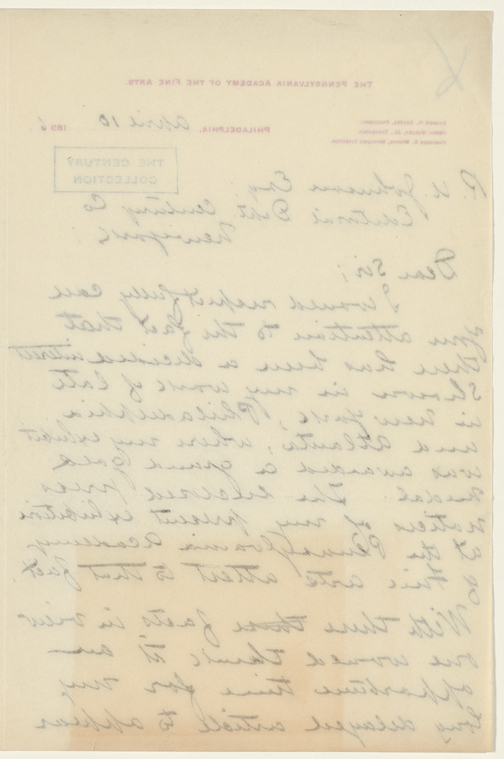 THE PENNSYLVANIA ACADEMY OF THE FINE ARTS.
PHILADELPHIA, April 10 1896
THE CENTURY
COLLECTION
R. U. Johnson Esq.
Editorial Dept. Century Co
New York
Dear Sir;
I would respectfully call
your attention to the fact that
there has been a decided interest
shown in my work of late
in New York, Philadelphia
and Atlanta, where my exhibit
was awarded a grand gold
medal. The enclosed press
notices of my present exhibition
at the Pennsylvania Academy
of Fine Arts attest to that fact
With these facts in view
one would think it an
opportune time for my
long delayed article to appear